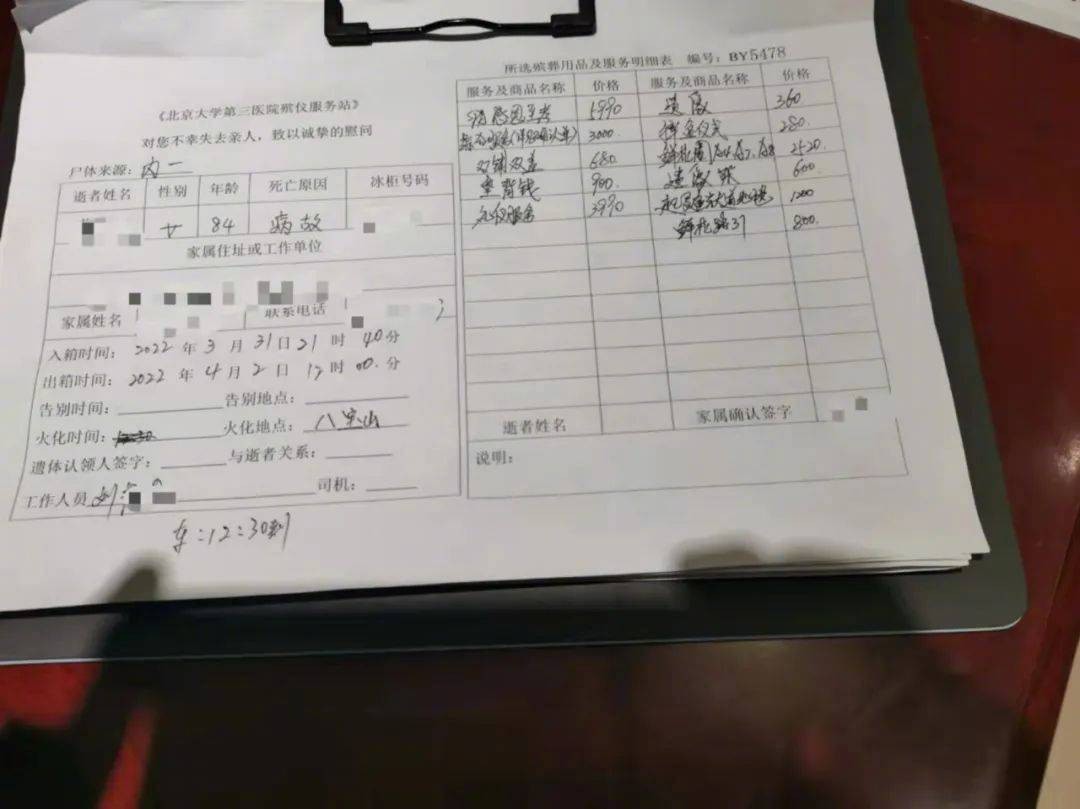 《北京大学第三医院殡仪服务站》
对您不幸失去亲人，致以诚挚的慰问
尸体来源：内一
逝者姓名 性别 年龄 死亡原因 冰柜号码
女 84 病故
家属住址或工作单位
家属姓名 联系电话
入箱时间：2022年3月31日21时40分
出箱时间：2022年4月2日12时00分
告别时间： 告别地点：
火化时间： 火化地点：八宝山
遗体认领人签字： 与逝者关系：
工作人员 司机：
车：12：30到
所选殡葬用品及服务明细表 编号：BY5478
服务及商品名称 价格 服务及商品名称 价格
5990 遗像 360
3000. 280.
双铺双盖 680. 2520.
垫背钱 900. 600
礼仪服务 3990 1200
鲜花 800.
逝者姓名 家属确认签字
说明：